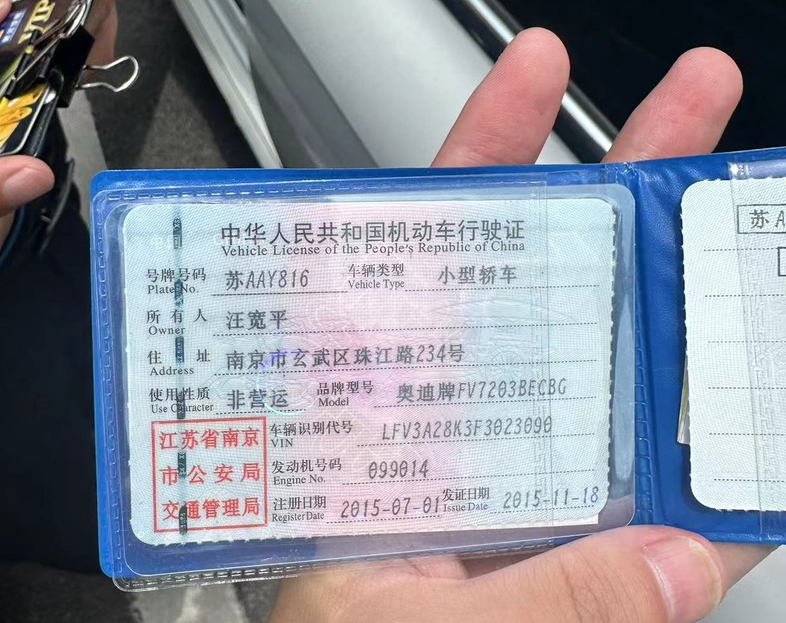 中华人民共和国机动车行驶证
Vehicle License of the People's Republic of China
号牌号码 苏AAY816 车辆类型 小型轿车
Plate No. Vehicle Type
所有人 汪宽平
Owner
住址 南京市玄武区珠江路234号
Address
使用性质 非营运 品牌型号 奥迪牌FV7203BECBG
Use Character Model
江苏省南京
市公安局
交通管理局
车辆识别代号 LFV3A28K3F3023090
VIN
发动机号码 099014
Engine No.
注册日期 2015-07-01 发证日期 2015-11-18
Register Date Issue Date
苏A